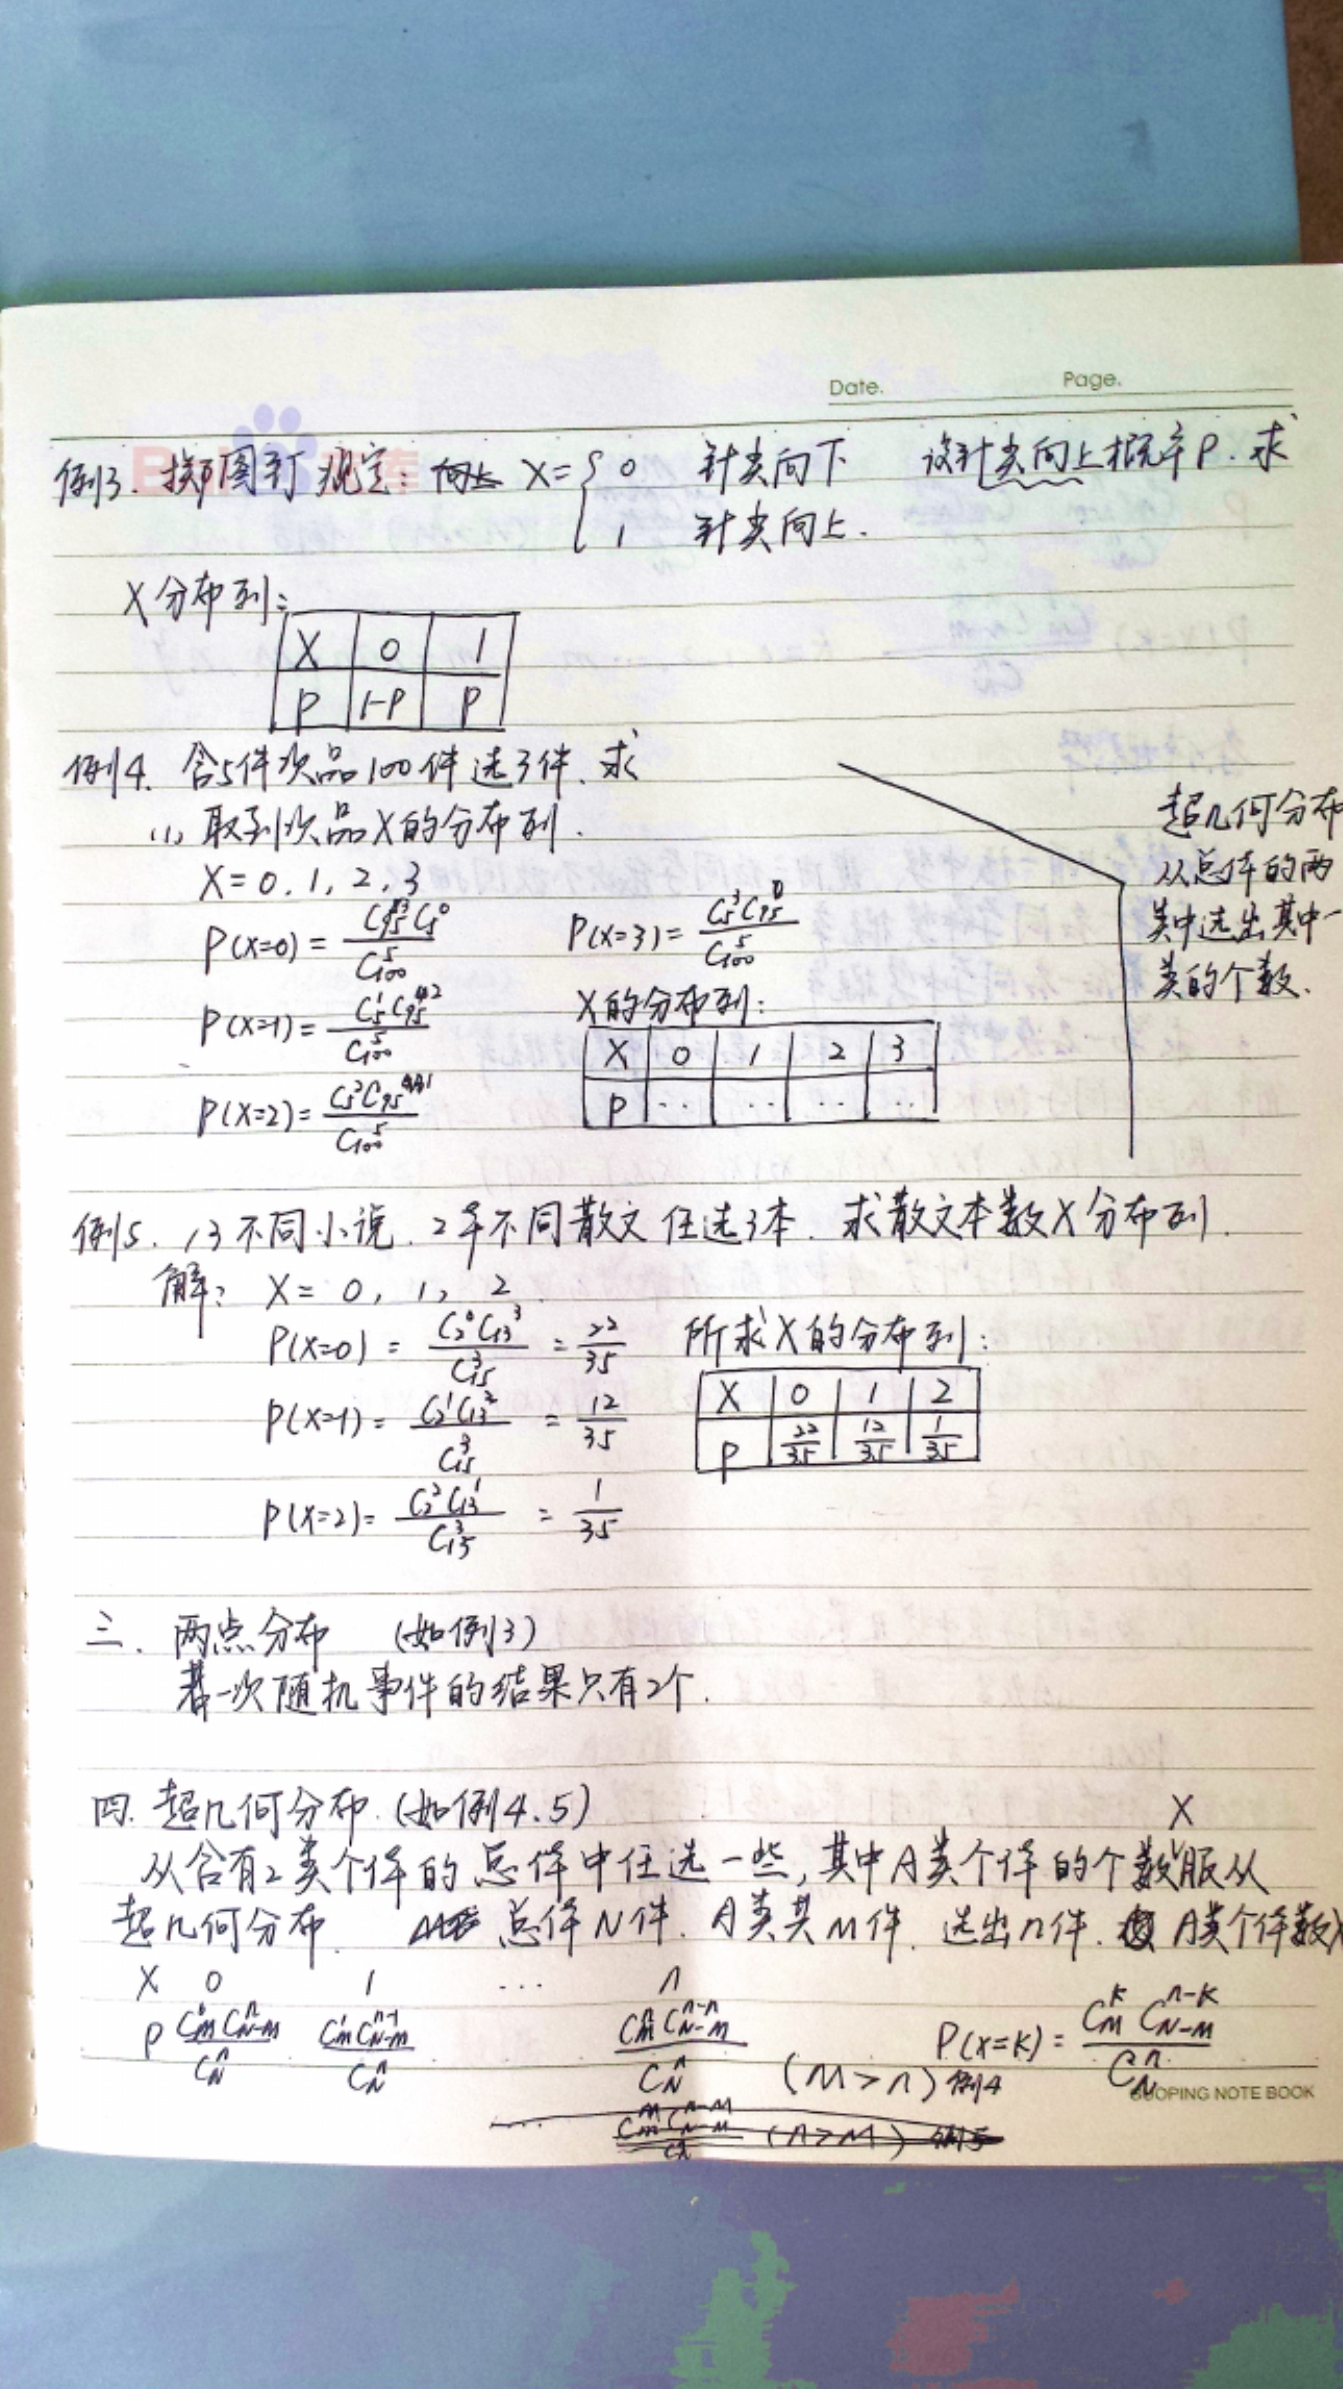 Date. Page.
例3. 掷图钉 规定: X = { 0 针尖向下 设针尖向上概率P. 求
1 针尖向上.
X分布列:
X 0 1
P 1-P P
例4. 含5件次品100件选3件. 求
(1) 取到次品X的分布列.
X = 0, 1, 2, 3
P(X=0) = C₉₅³C₅⁰ / C₁₀₀⁵
P(X=1) = C₅¹C₉₅² / C₁₀₀⁵
P(X=2) = C₅²C₉₅¹ / C₁₀₀⁵
P(X=3) = C₅³C₉₅⁰ / C₁₀₀⁵
X的分布列:
X 0 1 2 3
P ·· ·· ·· ··
超几何分布
从总体的两
类中选出其中一
类的个数.
例5. 13不同小说. 2本不同散文 任选3本. 求散文本数X分布列.
解: X = 0, 1, 2
P(X=0) = C₂⁰C₁₃³ / C₁₅³ = 22/35
P(X=1) = C₂¹C₁₃² / C₁₅³ = 12/35
P(X=2) = C₂²C₁₃¹ / C₁₅³ = 1/35
所求X的分布列:
X 0 1 2
P 22/35 12/35 1/35
三. 两点分布 (如例3)
若一次随机事件的结果只有2个.
四. 超几何分布. (如例4.5)
X
从含有2类个体的总体中任选一些, 其中A类个体的个数服从
超几何分布. 总体N件. A类共M件. 选出n件. A类个体数X
X 0 1 ... n
P C_M⁰C_{N-M}ⁿ / C_Nⁿ C_M¹C_{N-M}ⁿ⁻¹ / C_Nⁿ C_MⁿC_{N-M}ⁿ⁻ⁿ / C_Nⁿ (M>n) 例4 P(X=K) = C_M^K C_{N-M}^{n-K} / C_Nⁿ
GUOPING NOTE BOOK
... (n>M) 例5